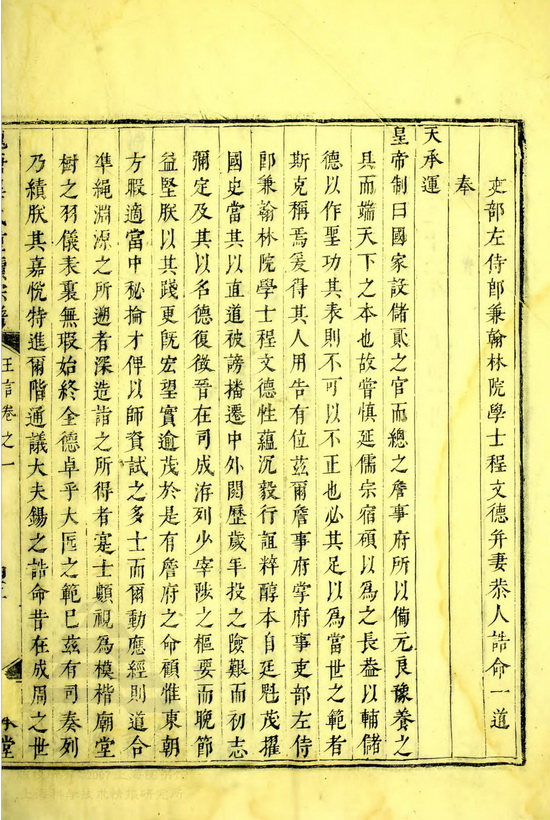 吏部左侍郎兼翰林院學士程文德并妻恭人誥命一道
奉
天承運
皇帝制曰國家設儲貳之官而總之詹事府所以備元良豫養之
具而端天下之本也故嘗慎延儒宗宿碩以為之長蓋以輔儲
德以作聖功其表則不可以不正也必其足以為當世之範者
斯克稱焉爰得其人用告有位茲爾詹事府掌府事吏部左侍
郎兼翰林院學士程文德性蘊沉毅行誼粹醇本自廷魁茂擢
國史當其以直道被謗播遷中外閱歷歲年投之險艱而初志
彌定及其以名德復徵晉在司成洊列少宰陟之樞要而晚節
益堅朕以其踐更既宏望實逾茂於是有詹府之命顧惟東朝
方暇適當中秘掄才俾以師資試之多士而爾動應經則道合
準繩淵源之所遡者深造詣之所得者寔士顒視為模楷廟堂
樹之羽儀表裏無瑕始終全德卓乎大臣之範巳茲有司奏列
乃績朕其嘉悅特進爾階通議大夫錫之誥命昔在成周之世
王言卷之一
堂